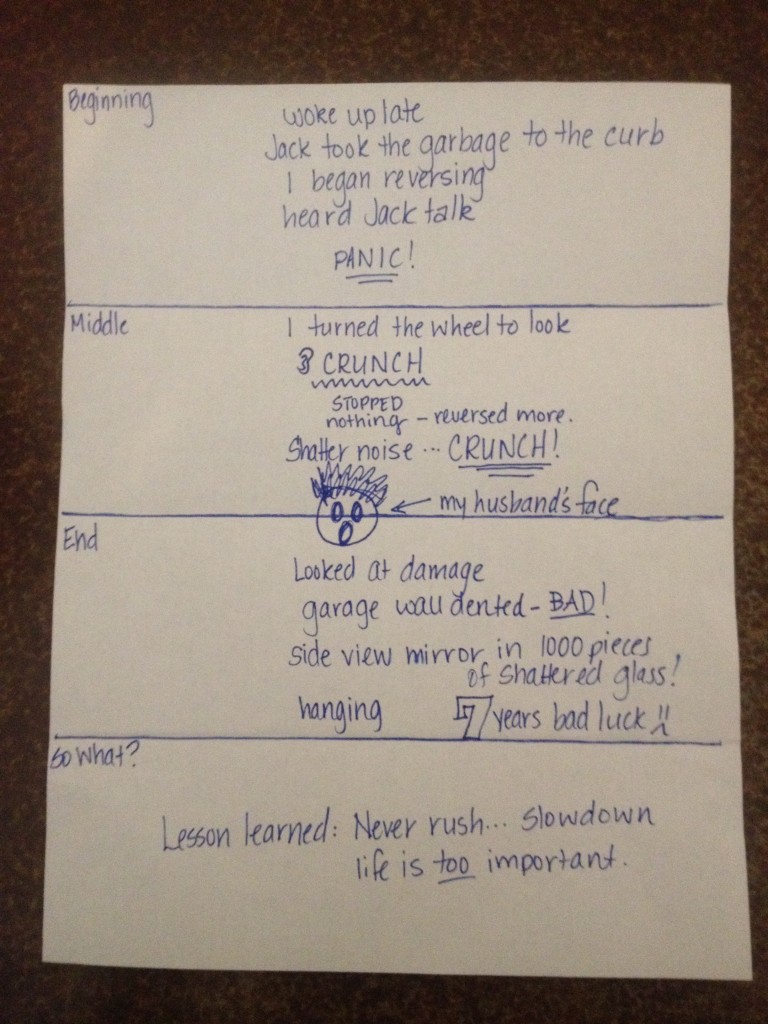 Beginning
woke up late
Jack took the garbage to the curb
I began reversing
heard Jack talk
PANIC!
Middle
I turned the wheel to look
CRUNCH
STOPPED
nothing - reversed more.
Shatter noise ... CRUNCH!
← my husband's face
End
Looked at damage
garage wall dented - BAD!
side view mirror in 1000 pieces
of shattered glass!
hanging 7 years bad luck
So What?
Lesson learned: Never rush... slowdown
life is too important.